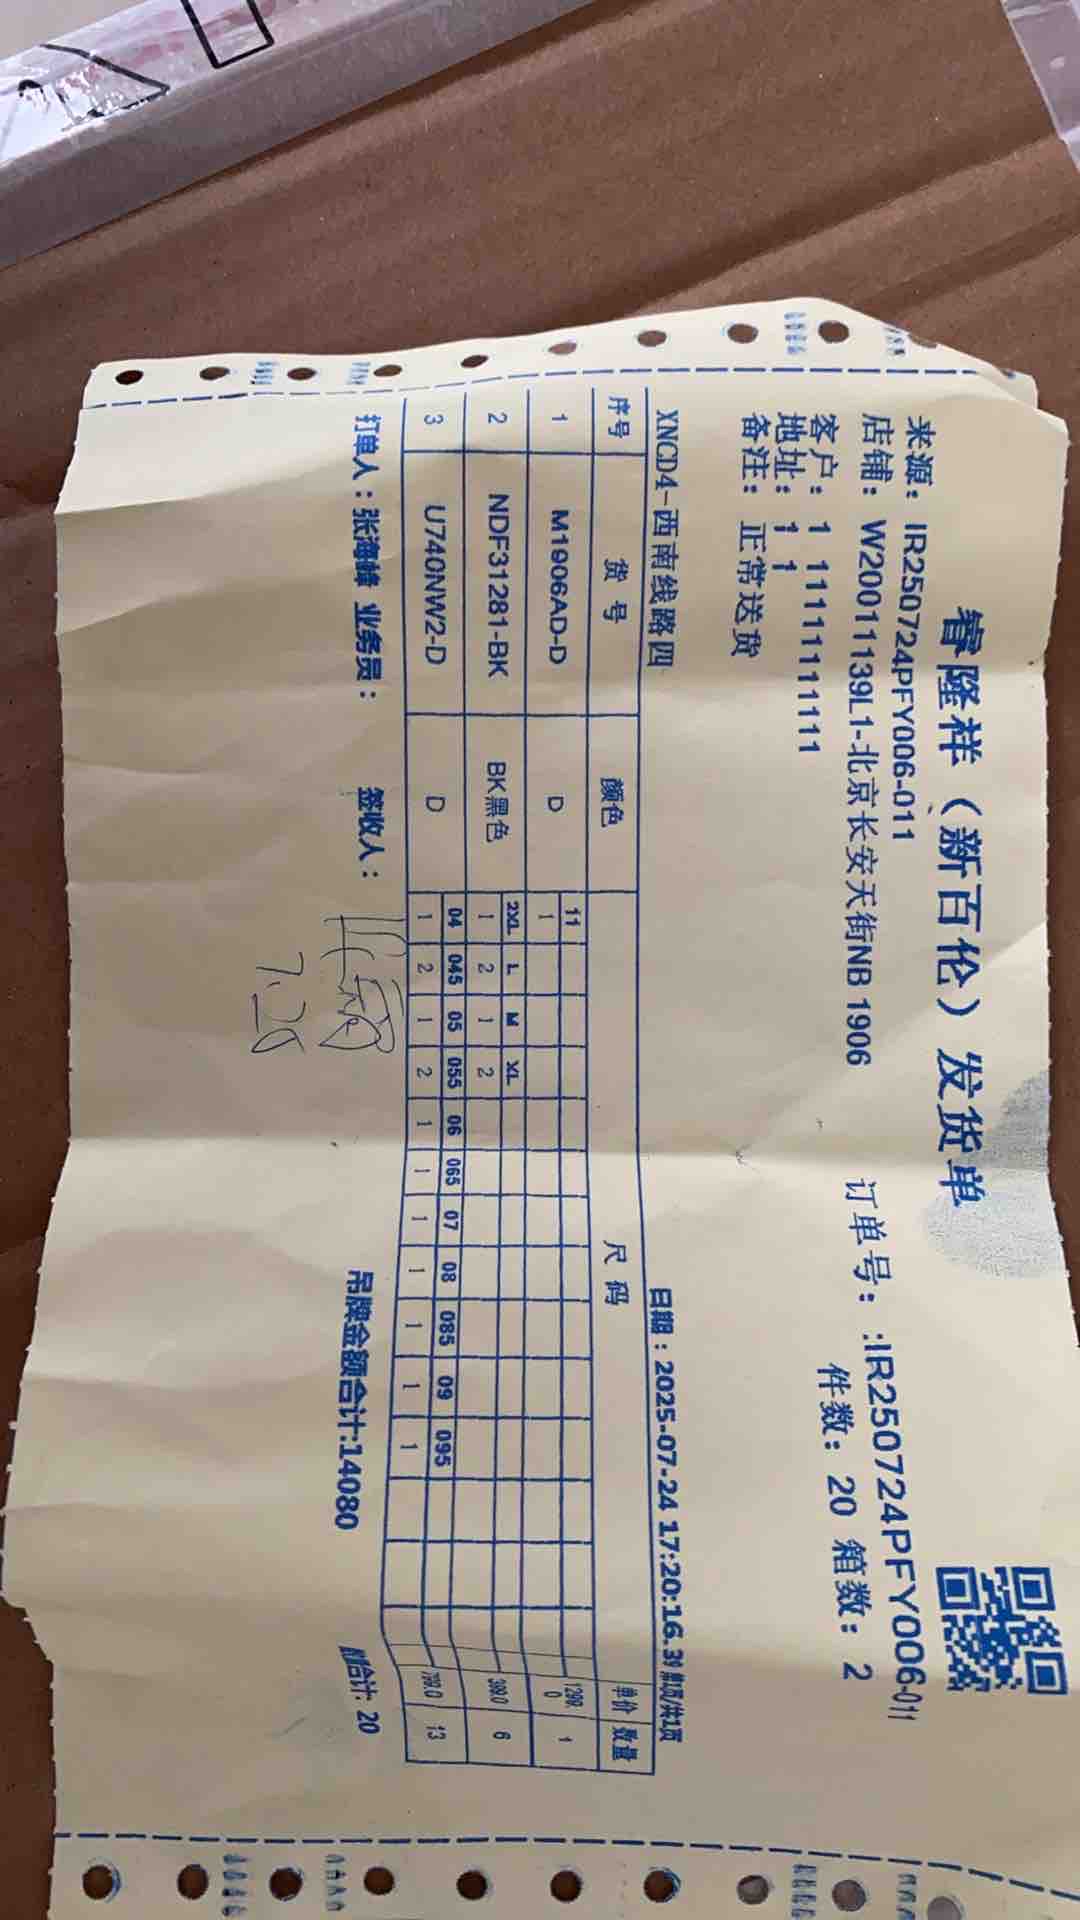 睿隆祥（新百伦）发货单
来源：IR250724PFY006-011 订单号：:IR250724PFY006-011
店铺：W20011139L1-北京长安天街NB 1906 件数：20 箱数：2
客户：1 11111111111
地址：1 1
备注：正常送货
XNCD4-西南线路四 日期：2025-07-24 17:20:16.39 第1页/共1页
序号 货号 颜色 尺码 单价 数量
11
1 M1906AD-D D 1 1299.0 1
2XL L M XL
2 NDF31281-BK BK黑色 1 2 1 2 399.0 6
04 045 05 055 06 065 07 08 085 09 095
3 U740NW2-D D 1 2 1 2 1 1 1 1 1 1 1 799.0 13
打单人：张海峰 业务员： 签收人： 吊牌金额合计:14080 合计: 20